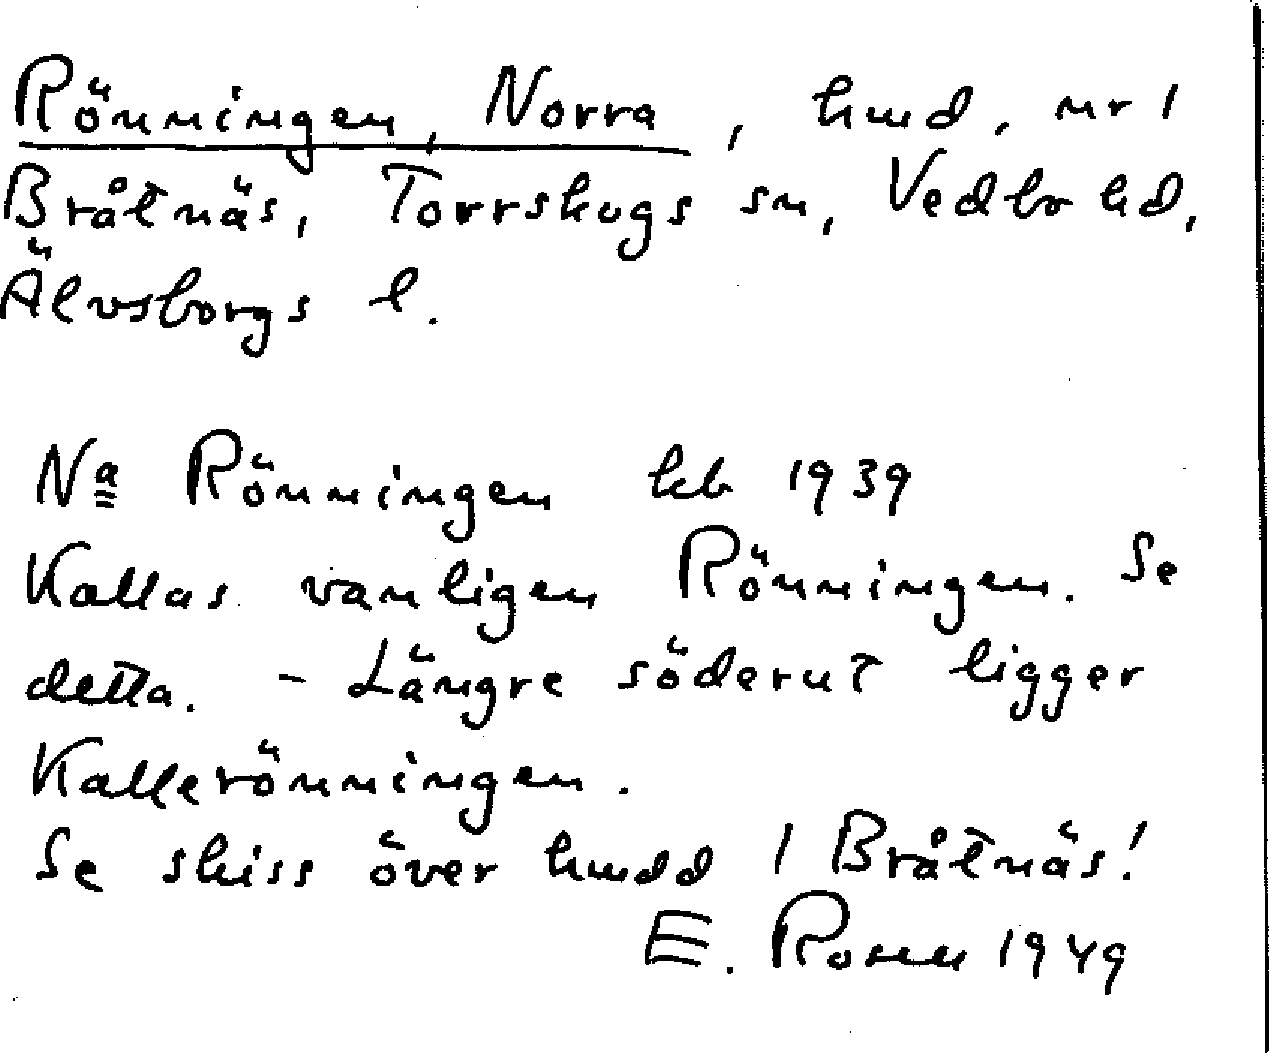 Rönningen, Norra, hmd. nr 1
Bråtnäs, Torrskogs sn, Vedbo hd,
Älvsborgs l.
Na Rönningen kb 1939
Kallas vanligen Rönningen. Se
detta. - Längre söderut ligger
Kallerönningen.
Se skiss över hmdd 1 Bråtnäs!
E. Rosen 1949